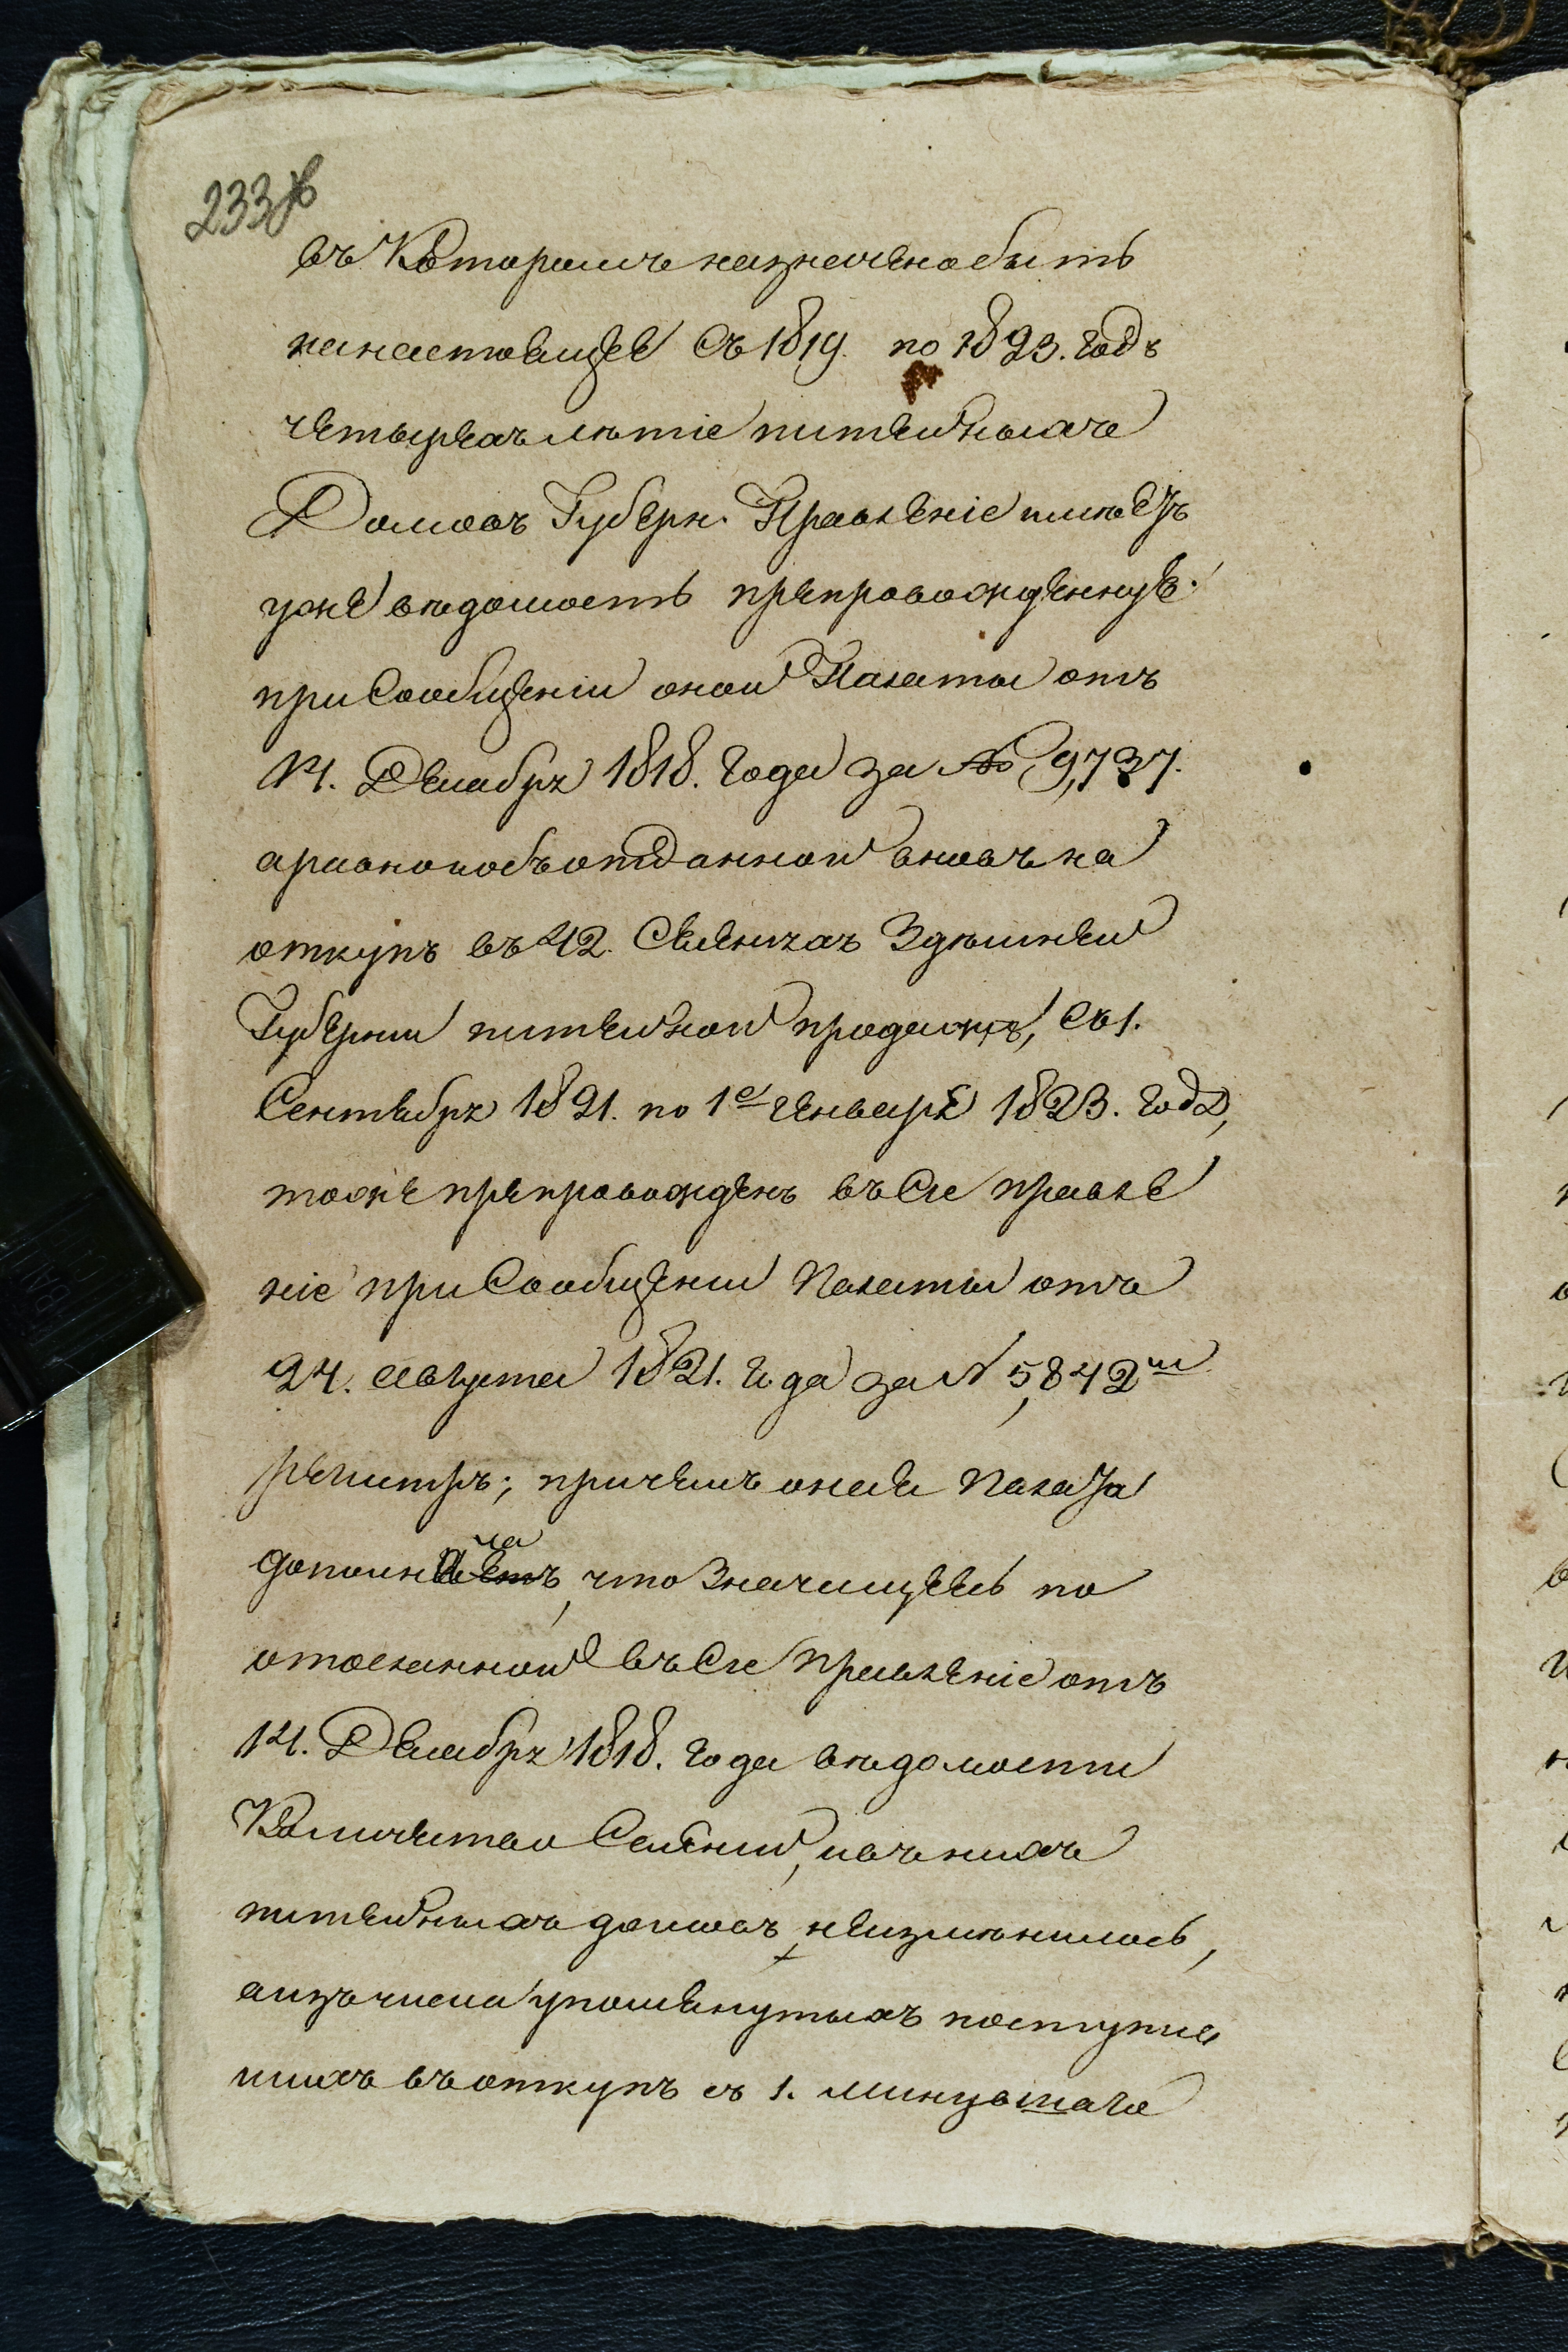 233 об
въ Которомъ назначено быть
на настоящее Съ 1819. по 1823. годъ
четырехъ лѣтіе питейныхъ
Домовъ Губерн. Правленіе имѣетъ
уже вѣдомость препровожденную
при Сообщеніи оной Палаты отъ
14. Декабря 1818. Года за № 9,737.
а равно и объ отданной вновь на
откупъ въ 42. Селенияхъ Здѣшней
Губернии питейной продажѣ, Съ 1.
Сентября 1821. по 1е Генваря 1823. Года,
тоже препровожденъ въ Сіе правле
ніе при Сообщении Палаты отъ
24. Августа 1821. Года за № 5,842м
регистръ; причемъ оная Палата
дополняетъ, что Значущееся по
отосланной въ Сіе Правленіе отъ
14. Декабря 1818. Года вѣдомости
Количество Селений, и въ нихъ
питейныхъ домовъ, неизмѣнилось,
а изъ числа упомянутыхъ поступив
шихъ въ откупъ съ 1. минувшаго